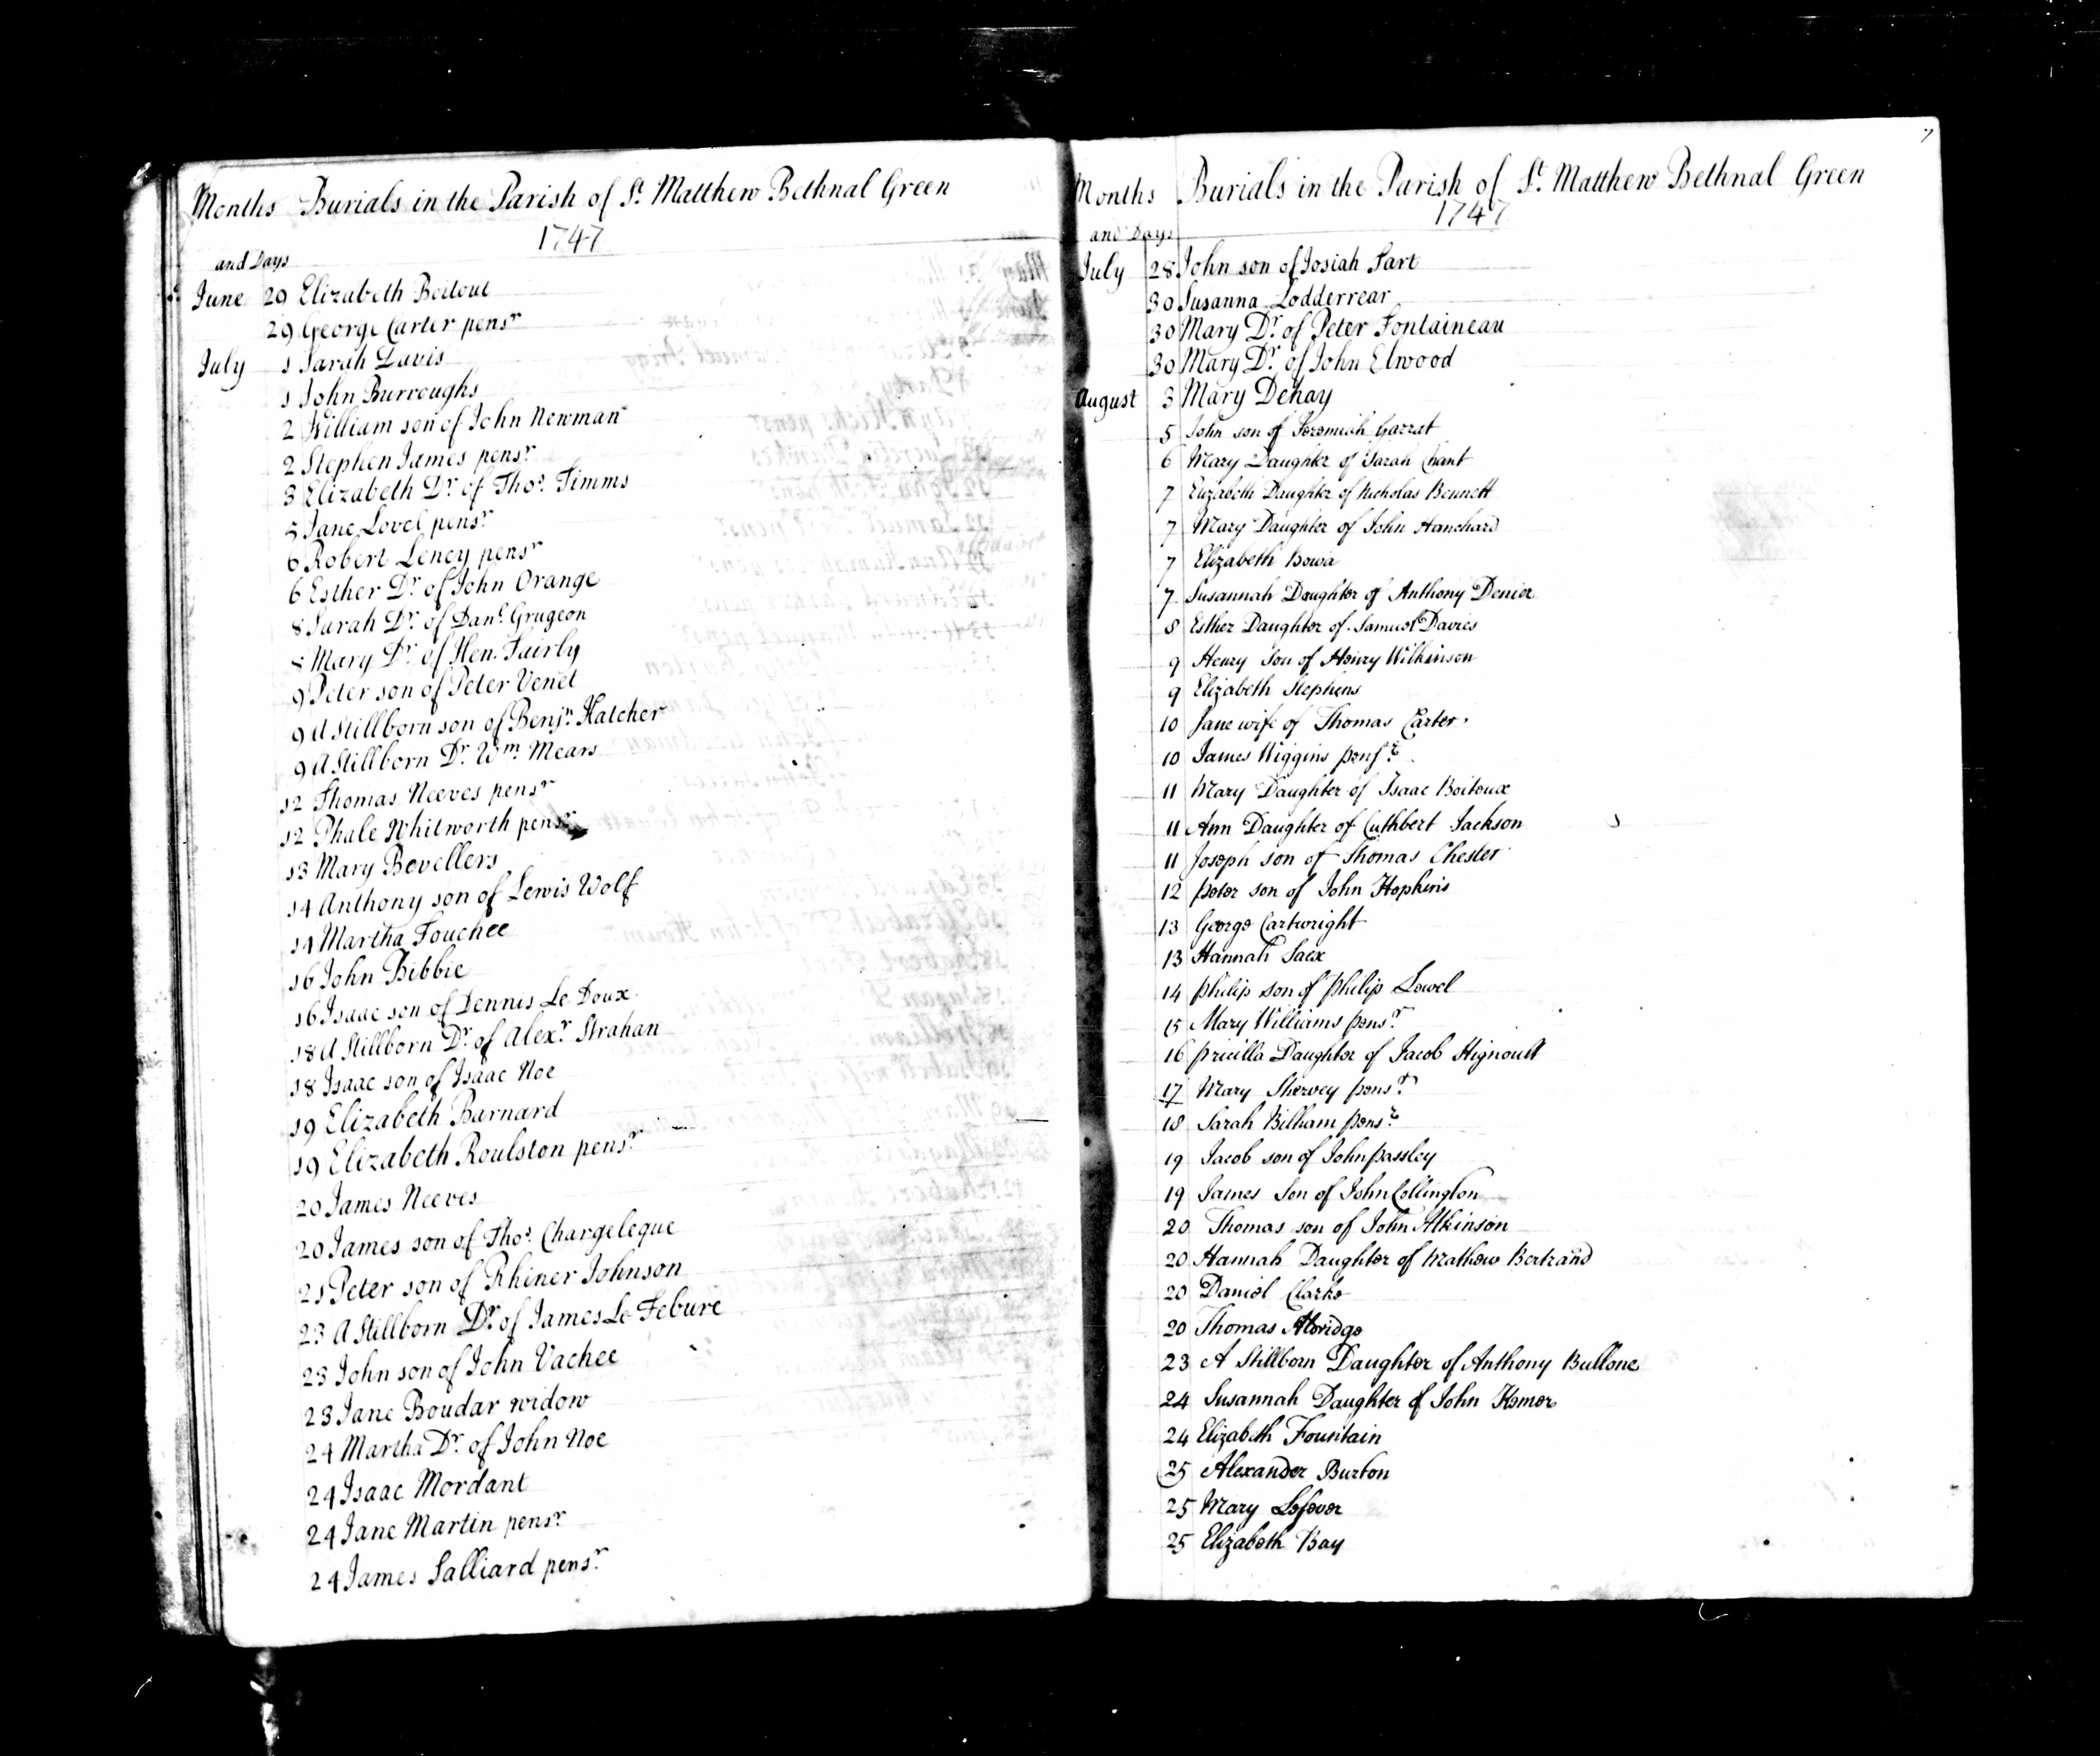 Months Burials in the Parish of St. Matthew Bethnal Green
1747
and Days
June 29 Elizabeth Boitout
29 George Carter pensr.
July 1 Sarah Davis
1 John Burroughs
2 William son of John Newman
2 Stephen James pensr.
3 Elizabeth Dr. of Thos. Timms
5 Jane Lovel pensr.
6 Robert Leney pensr.
6 Esther Dr. of John Orange
8 Sarah Dr. of Danl. Grugeon
8 Mary Dr. of Hen. Fairly
9 Peter son of Peter Venet
9 A Stillborn son of Benjn. Hatcher
9 A Stillborn Dr. Wm. Mears
12 Thomas Neeves pensr.
12 Phale Whitworth pensr.
13 Mary Bovellers
14 Anthony son of Lewis Wolf
14 Martha Fouchee
16 John Bibbie
16 Isaac son of Dennis Le Doux
18 A Stillborn Dr. of Alexr. Strahan
18 Isaac son of Isaac Noe
19 Elizabeth Barnard
19 Elizabeth Roulston pensr.
20 James Neeves
20 James son of Thos. Chargelegue
21 Peter son of Rhiner Johnson
23 A Stillborn Dr. of James Le Febure
23 John son of John Vachee
23 Jane Boudar widow
24 Martha Dr. of John Noe
24 Isaac Mordant
24 Jane Martin pensr.
24 James Salliard pensr.
7
Months Burials in the Parish of St. Matthew Bethnal Green
1747
and Days
July 28 John son of Josiah Sart
30 Susanna Lodderrear
30 Mary Dr. of Peter Fontaineau
30 Mary Dr. of John Elwood
August 3 Mary Dehay
5 John son of Jeremiah Garrat
6 Mary Daughter of Sarah Chant
7 Elizabeth Daughter of Nicholas Bennett
7 Mary Daughter of John Hanchard
7 Elizabeth Bowa
7 Susannah Daughter of Anthony Denier
8 Esther Daughter of Samuel Davies
9 Henry Son of Henry Wilkinson
9 Elizabeth Stephens
10 Jane wife of Thomas Carter
10 James Wiggins pensr.
11 Mary Daughter of Isaac Boitoux
11 Ann Daughter of Cuthbert Jackson
11 Joseph son of Thomas Chester
12 peter son of John Hopkins
13 George Cartwright
13 Hannah Saex
14 philip son of philip Lowel
15 Mary Williams pensr.
16 pricilla Daughter of Jacob Hignoult
17 Mary Shervey pensr.
18 Sarah Billham pensr.
19 Jacob son of John passley
19 James Son of John Collington
20 Thomas son of John Atkinson
20 Hannah Daughter of Mathew Bertrand
20 Daniel Clarke
20 Thomas Aldridge
23 A Stillborn Daughter of Anthony Bullone
24 Susannah Daughter of John Kemer
24 Elizabeth Fountain
25 Alexander Burton
25 Mary Lefever
25 Elizabeth Bay